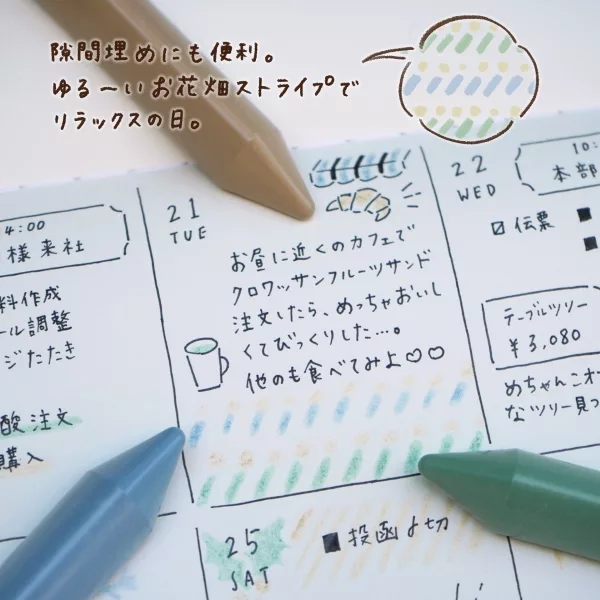 隙間埋めにも便利。
ゆる〜いお花畑ストライプで
リラックスの日。
4:00
様来社
料作成
ール調整
ジたたき
酸注文
購入
21
TUE
お昼に近くのカフェで
クロワッサンフルーツサンド
注文したら、めっちゃおいし
くてびっくりした…。
他のも食べてみよ♡♡
22
WED
10:
本部
☑ 伝票 ■
■
テーブルツリー
¥3,080
めちゃんこオ
なツリー見つ
25
SAT
■ 投函〆切